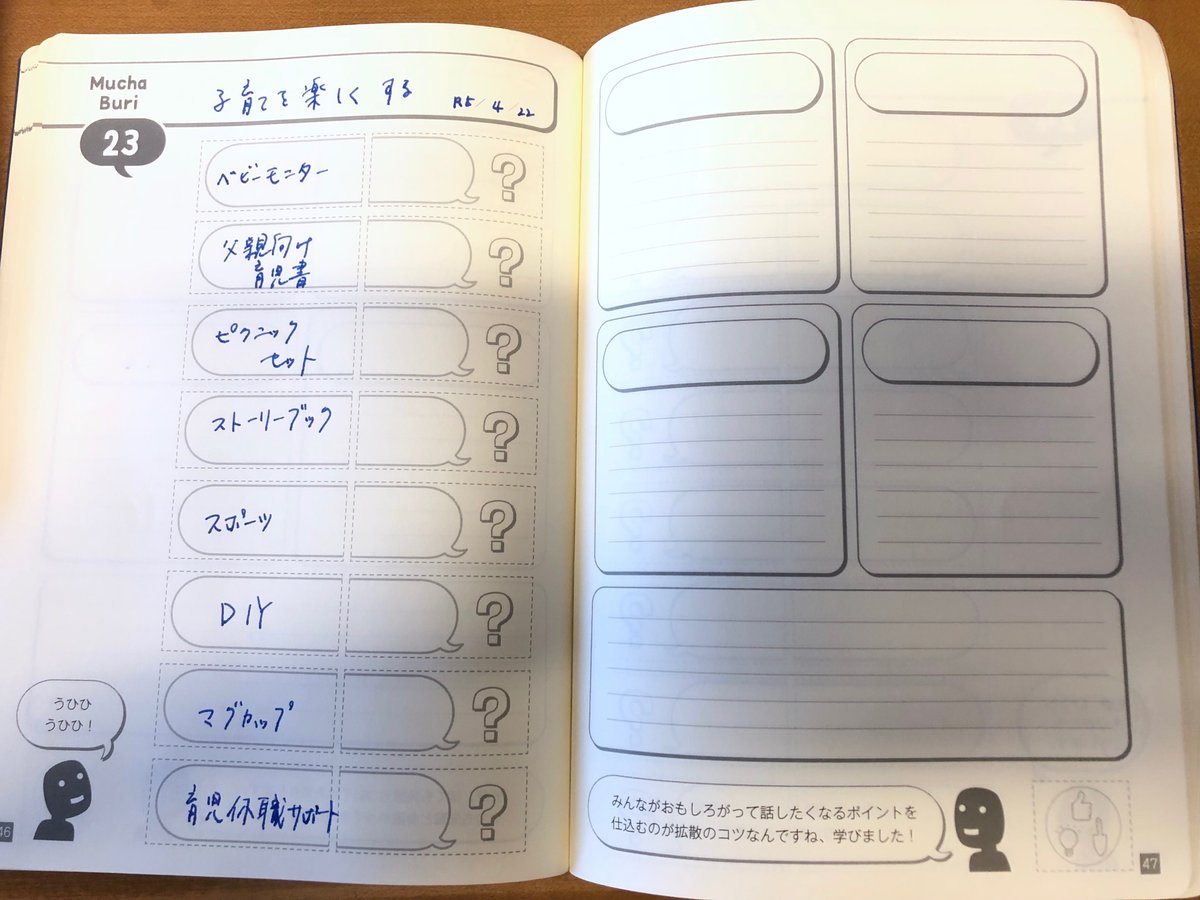 Mucha
Buri
23
子育てを楽しくする
R5/4/22
ベビーモニター
?
父親向け
育児書
?
ピクニック
セット
?
ストーリーブック
?
スポーツ
?
DIY
?
マグカップ
?
育児休職サポート
?
うひひ
うひひ！
46
みんながおもしろがって話したくなるポイントを
仕込むのが拡散のコツなんですね、学びました！
47